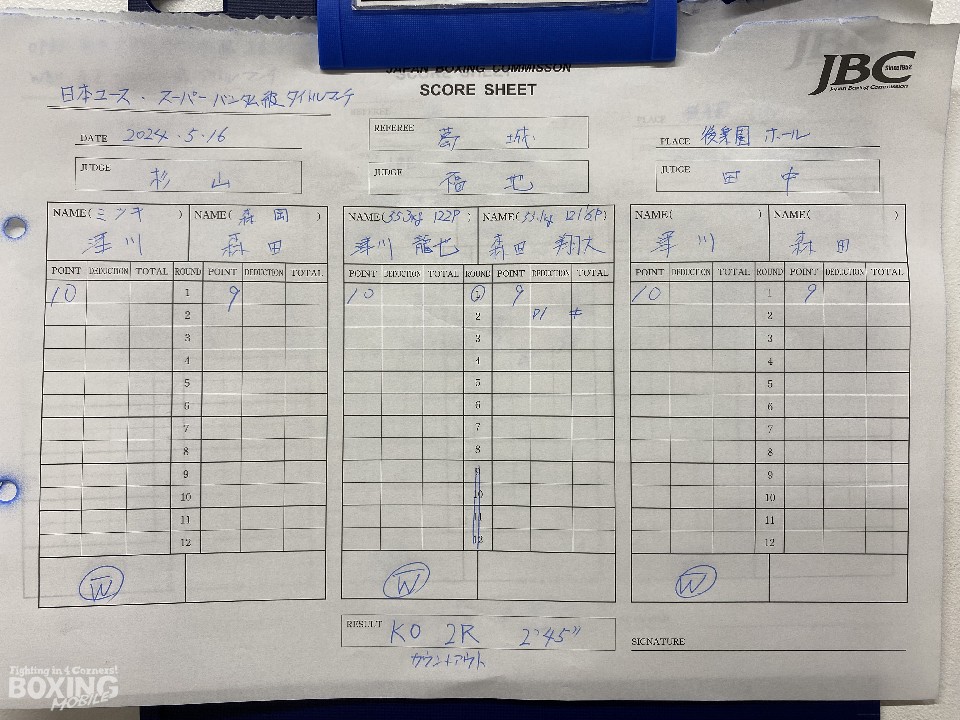 JAPAN BOXING COMMISSON
SCORE SHEET
JBC
Since1952
Japan Boxing Commission
日本ユース・スーパーバンタム級タイトルマッチ
DATE 2024.5.16
REFEREE 葛城
PLACE 後楽園ホール
JUDGE 杉山
JUDGE 福地
JUDGE 田中
NAME(ミツキ) NAME(森岡)
澤川 森田
NAME(55.3kg 122P) NAME(55.1kg 121.6P)
澤川 龍也 森田 翔大
NAME( ) NAME( )
澤川 森田
POINT DEDUCTION TOTAL ROUND POINT DEDUCTION TOTAL
10 1 9
2
3
4
5
6
7
8
9
10
11
12
W
POINT DEDUCTION TOTAL ROUND POINT DEDUCTION TOTAL
10 1 9
2 D1
3
4
5
6
7
8
9
10
11
12
W
POINT DEDUCTION TOTAL ROUND POINT DEDUCTION TOTAL
10 1 9
2
3
4
5
6
7
8
9
10
11
12
W
RESULT KO 2R 2'45"
カウントアウト
SIGNATURE
Fighting in 4 Corners!
BOXING
MOBILE